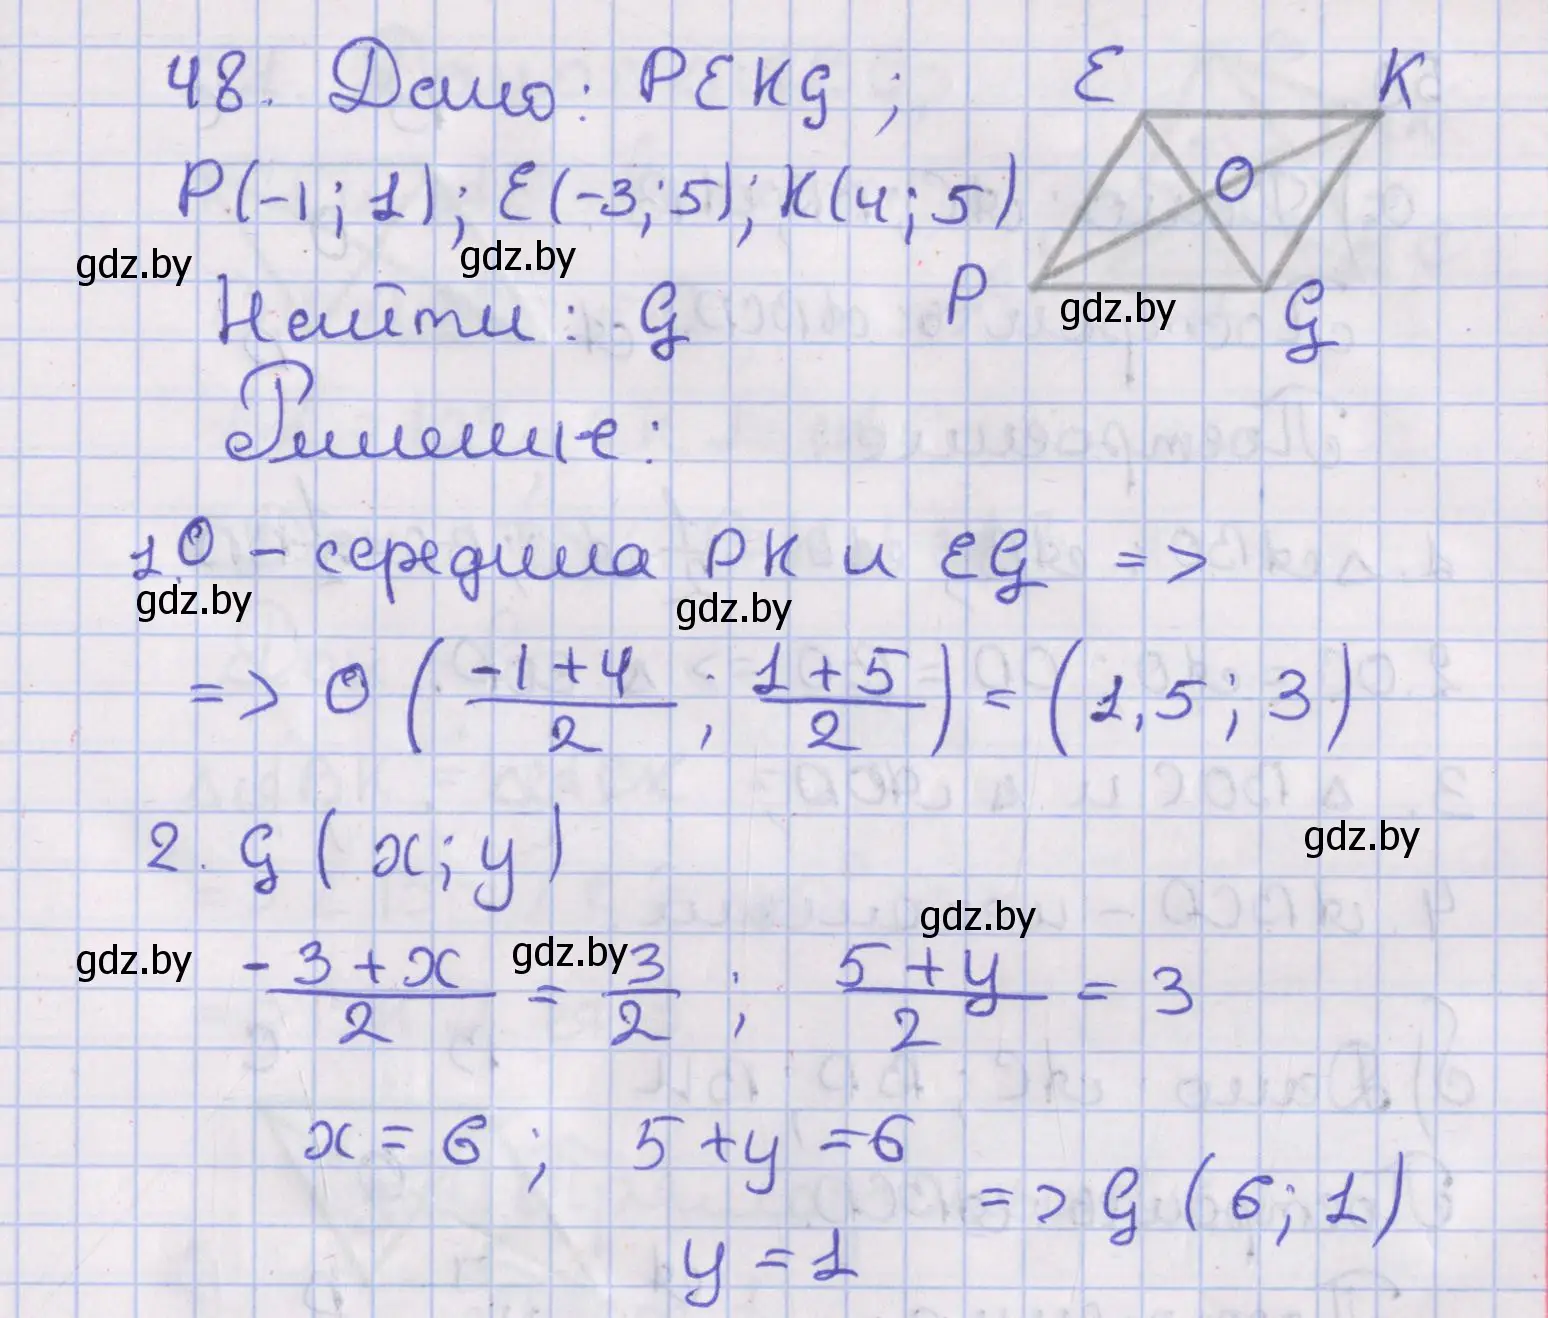 48. Дано: PEKG;
E K
P(-1; 1); E(-3; 5); K(4; 5)
O
gdz.by gdz.by
Найти: G
P gdz.by G
Решение:
1.O – середина PK и EG =>
gdz.by gdz.by
=> O ( (-1+4)/2 ; (1+5)/2 ) = (1,5; 3)
2. G (x; y)
gdz.by
gdz.by gdz.by gdz.by
(-3+x)/2 = 3/2 ; (5+y)/2 = 3
x = 6 ; 5 + y = 6
=> G (6; 1)
y = 1